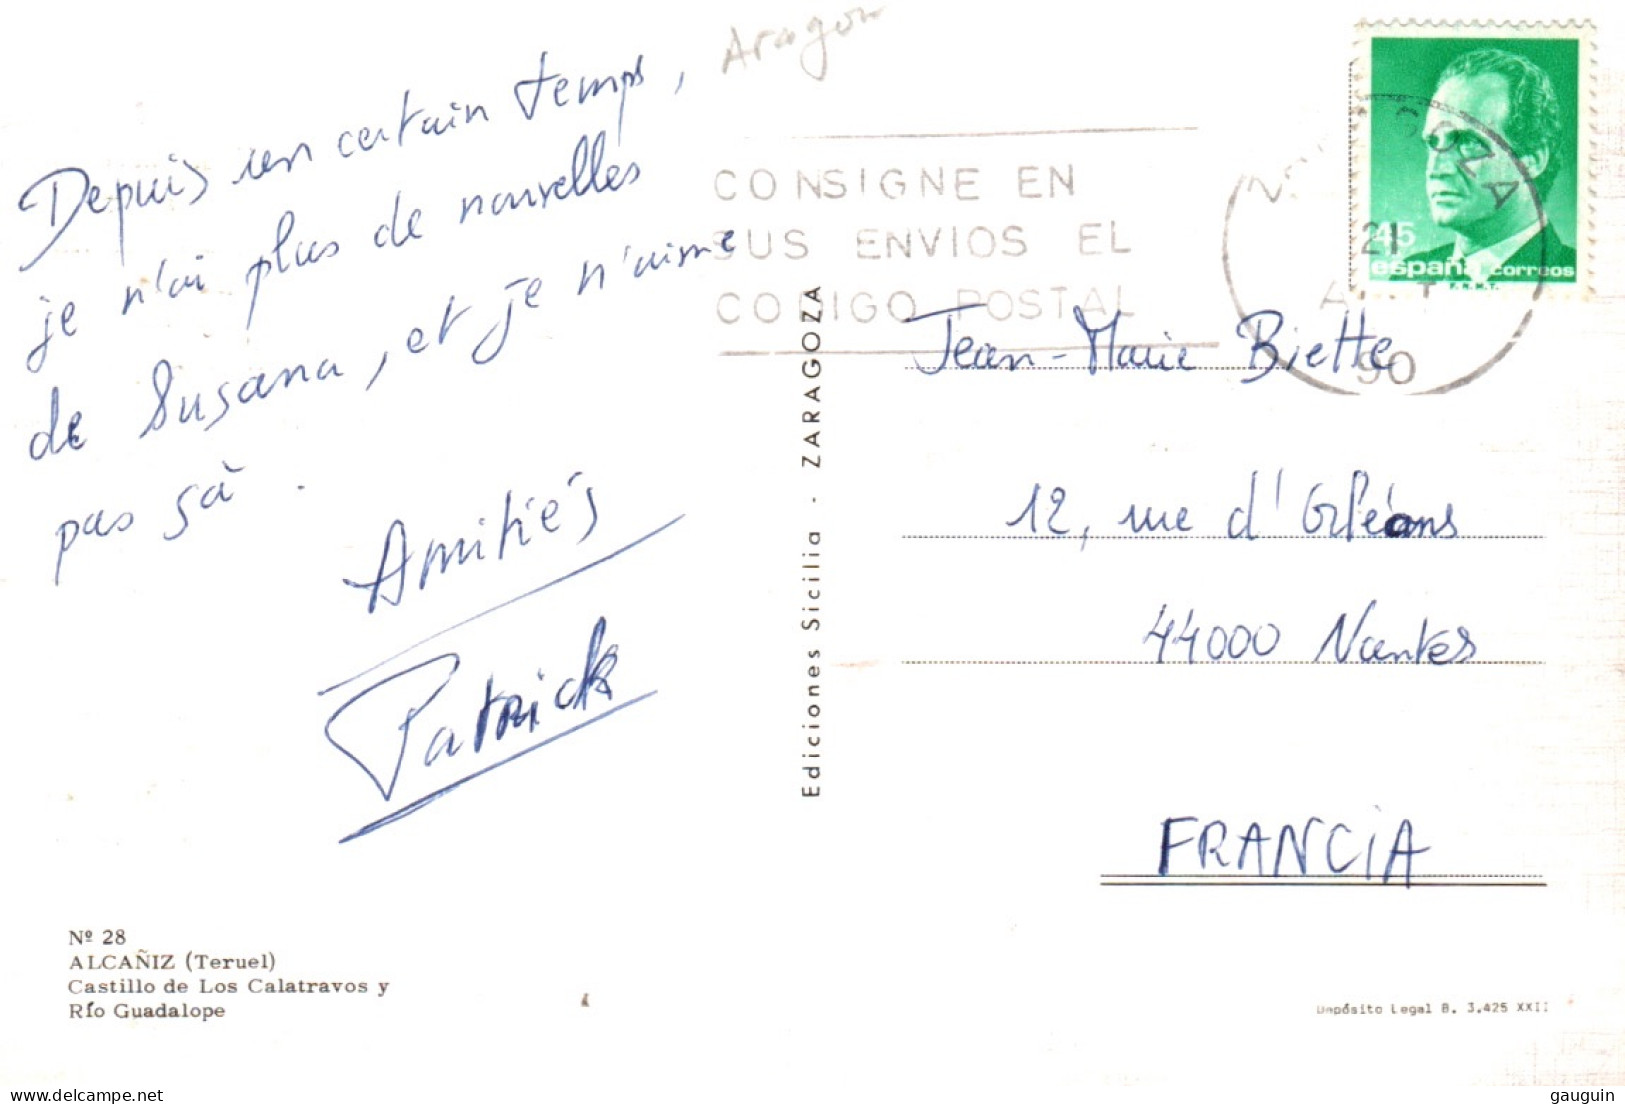 Aragon
Depuis un certain temps,
je n'ai plus de nouvelles
de Susana, et je n'aime
pas çà.
Amitiés
Patrick
Nº 28
ALCAÑIZ (Teruel)
Castillo de Los Calatravos y
Río Guadalope
Ediciones Sicilia - ZARAGOZA
CONSIGNE EN
SUS ENVIOS EL
CODIGO POSTAL
21
90
45
españa correos
F.N.M.T.
Jean-Marie Biette
12, rue d'Orléans
44000 Nantes
FRANCIA
Depósito Legal B. 3.425 XXII
www.delcampe.net
gauguin